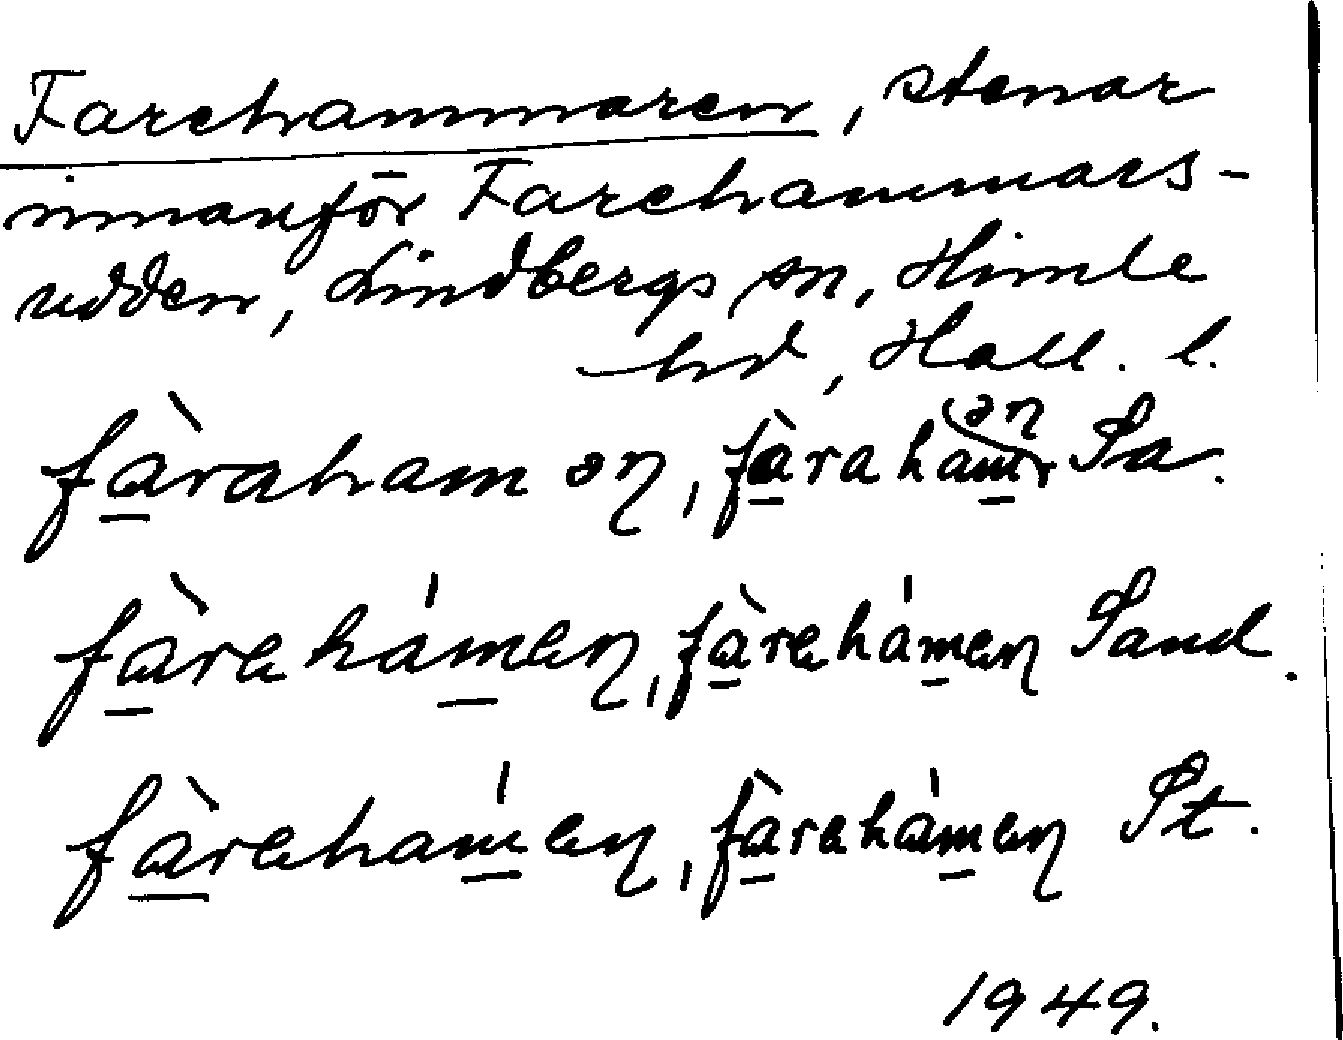 Farehammaren, stenar
innanför Farehammars-
udden, Lindbergs sn, Himle
hd, Hall. l.
fàraham ən, fàraham Sa.
fàrehámen, fàrehámen Sand.
fàrehámen, fàrehámen St.
1949.